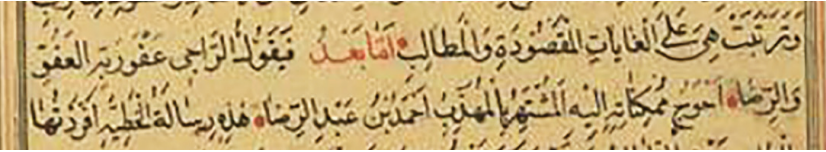 وترتبت هی علی الغايات المقصودة والمطالب امّا بعد فيقول الراجی عفو ربه العفوّ
والرضاء احوج ممكناته اليه المشتهر بالمهذب احمد بن عبد الرضاء هذه رسالة خطية افردتها